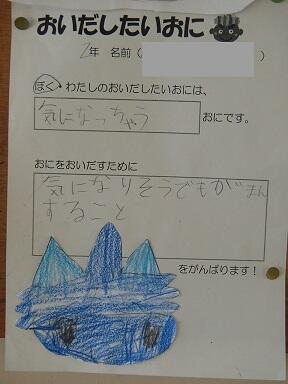 おいだしたいおに
2年 名前 ( )
ぼく・わたしのおいだしたいおには、
気になっちゃう おにです。
おにをおいだすために
気になりそうでもがまん
すること
をがんばります！